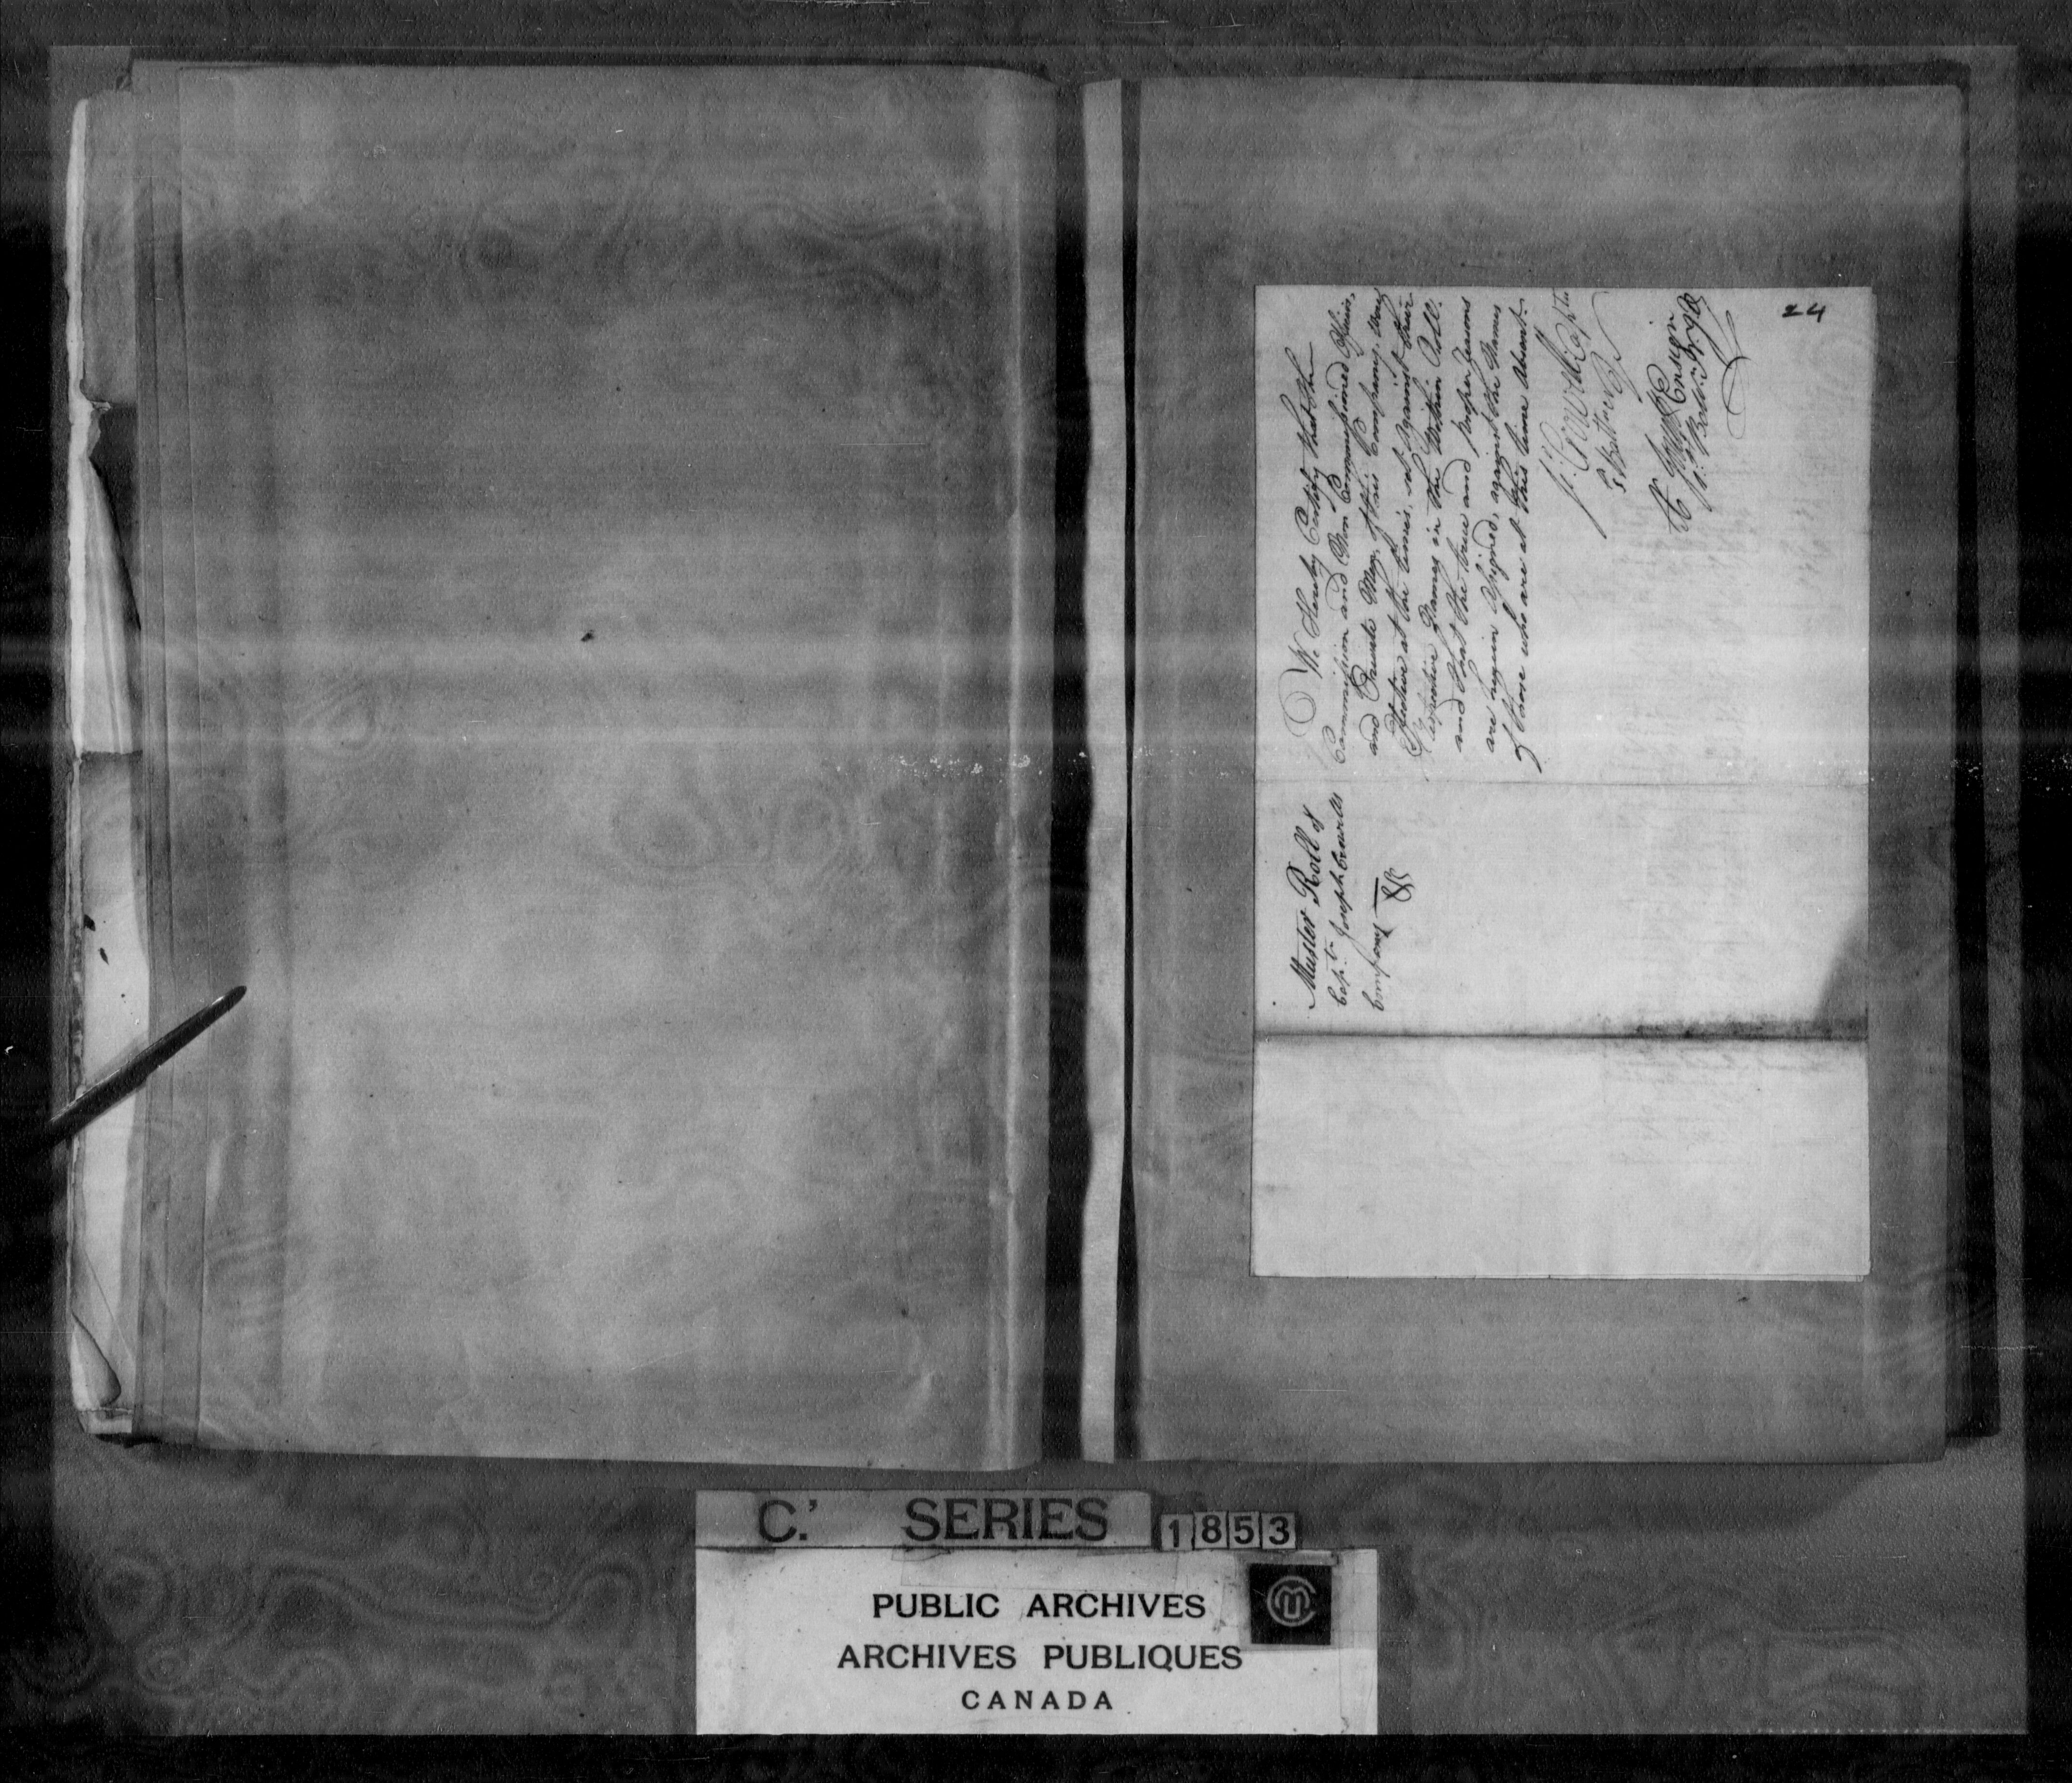 We Hereby Certify that the
Commission and Non Commissioned Officers,
and Private Men, of this Company, were
Effective at the times, set against their
respective Names in the Within Roll.
and that the true and proper reasons
are hereunto Assigned, against the Names
of those who are at this time Absent.
Capt
Ensign
24
Muster Roll of
Capt. Joseph
Company
C. SERIES 1853
PUBLIC ARCHIVES
ARCHIVES PUBLIQUES
CANADA